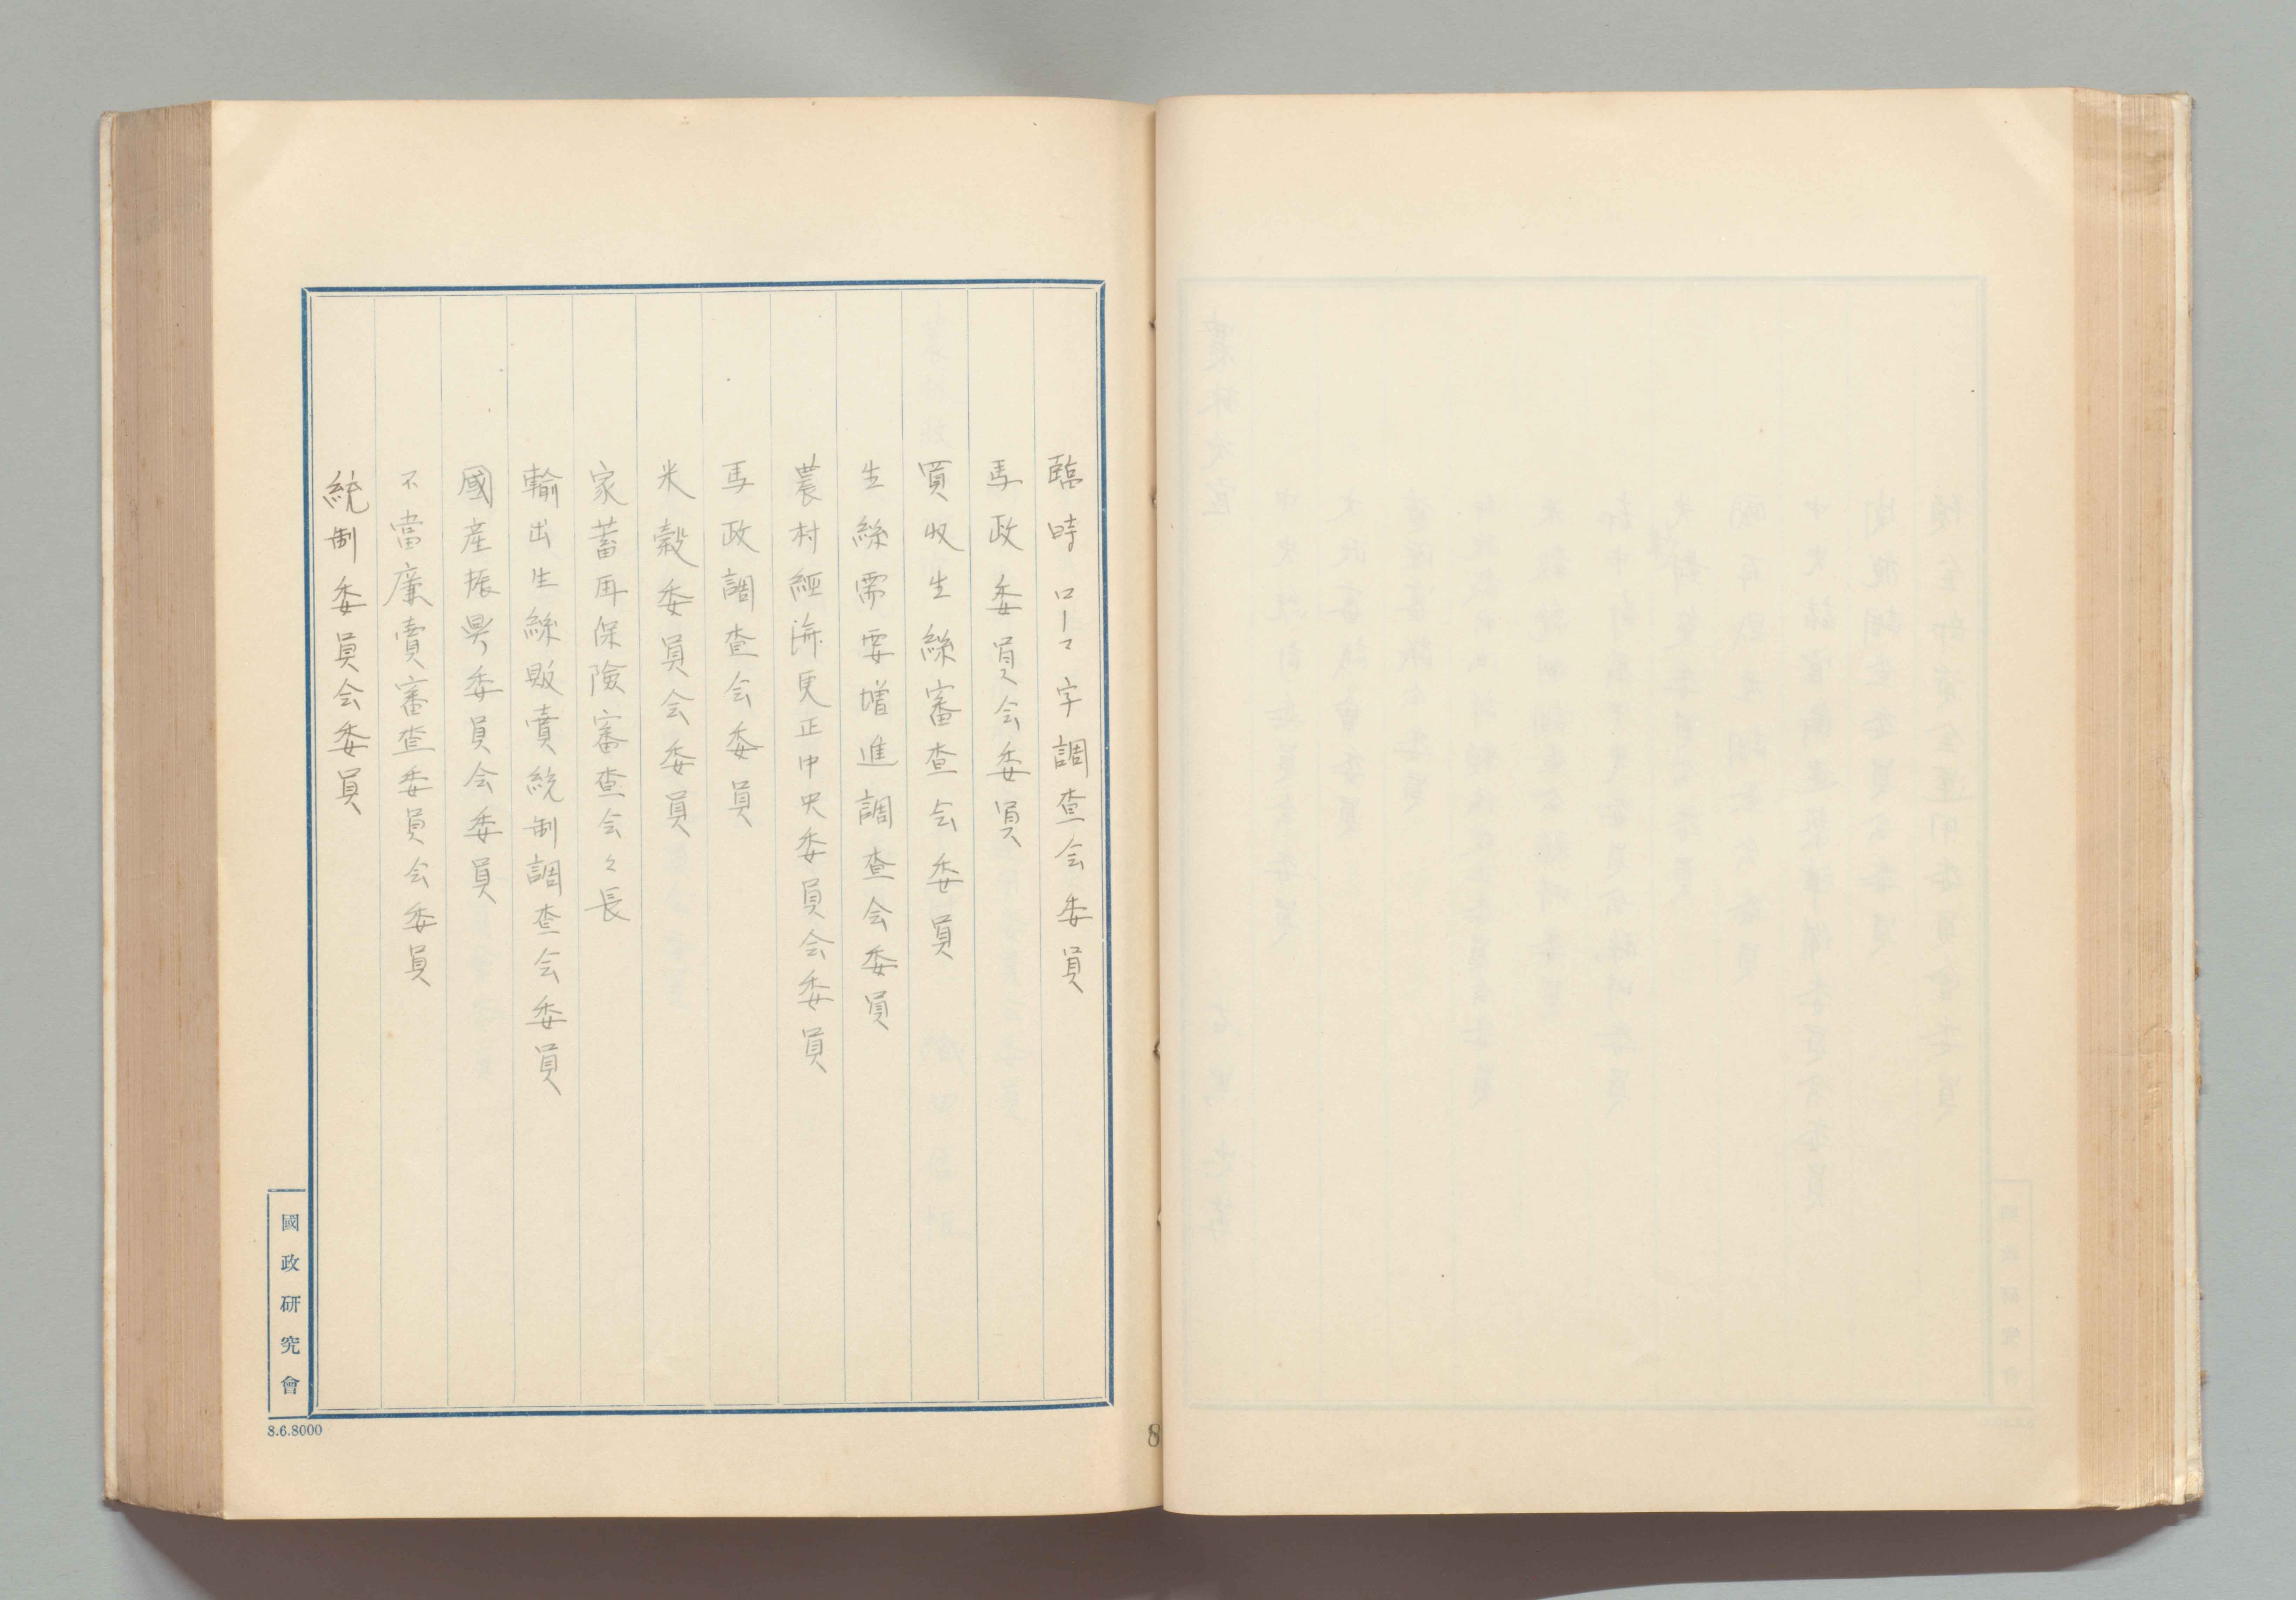 臨時ローマ字調査会委員
馬政委員会委員
買收生絲審査会委員
生絲需要増進調査会委員
農村經済更正中央委員会委員
馬政調査会委員
米穀委員会委員
家蓄再保險審査会々長
輸出生絲販賣統制調査会委員
國産振興委員会委員
不當廉賣審査委員会委員
統制委員会委員
國政研究會
8.6.8000
8